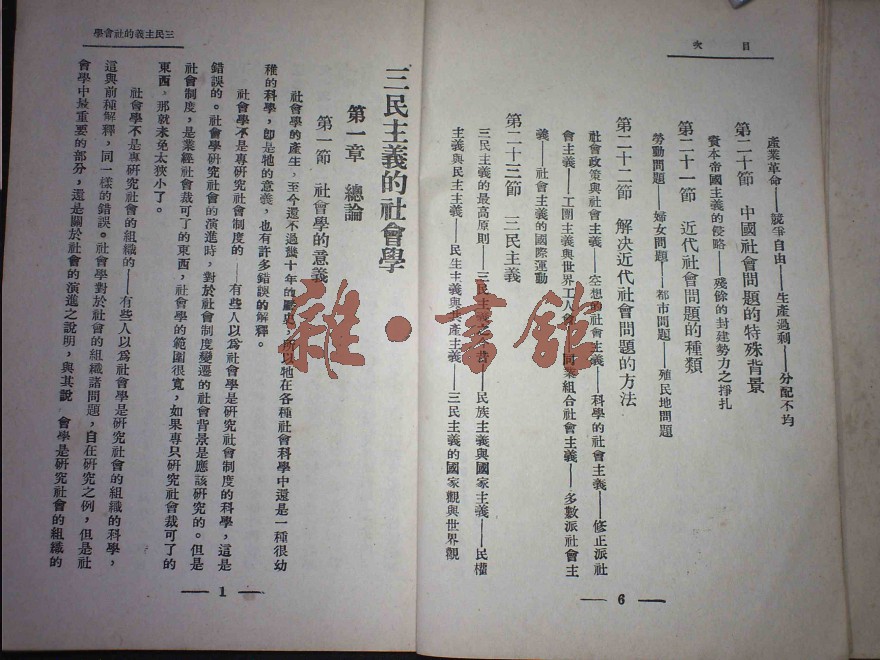 目次
產業革命——競爭自由——生產過剩——分配不均
第二十節 中國社會問題的特殊背景
資本帝國主義的侵略——殘餘的封建勢力之掙扎
第二十一節 近代社會問題的種類
勞動問題——婦女問題——都市問題——殖民地問題
第二十二節 解決近代社會問題的方法
社會政策與社會主義——空想的社會主義——科學的社會主義——修正派社
會主義——工團主義與世界工人會——同業組合社會主義——多數派社會主
義——社會主義的國際運動
第二十三節 三民主義
三民主義的最高原則——三民主義之——民族主義與國家主義——民權
主義與民主主義——民生主義與共產主義——三民主義的國家觀與世界觀
— 6 —
三民主義的社會學
三民主義的社會學
第一章 總論
第一節 社會學的意義
社會學的產生,至今還不過幾十年的歷史,所以牠在各種社會科學中還是一種很幼
稚的科學,卽是牠的意義,也有許多錯誤的解釋。
社會學不是專研究社會制度的——有些人以爲社會學是研究社會制度的科學,這是
錯誤的。社會學研究社會的演進時,對於社會制度變遷的社會背景是應該研究的。但是
社會制度,是業經社會裁可了的東西,社會學的範圍很寬,如果專只研究社會裁可了的
東西,那就未免太狹小了。
社會學不是專研究社會的組織的——有些人以爲社會學是研究社會的組織的科學,
這與前種解釋,同一樣的錯誤。社會學對於社會的組織諸問題,自在研究之例,但是社
會學中最重要的部分,還是關於社會的演進之說明,與其說 會學是研究社會的組織的
— 1 —
雜·書館